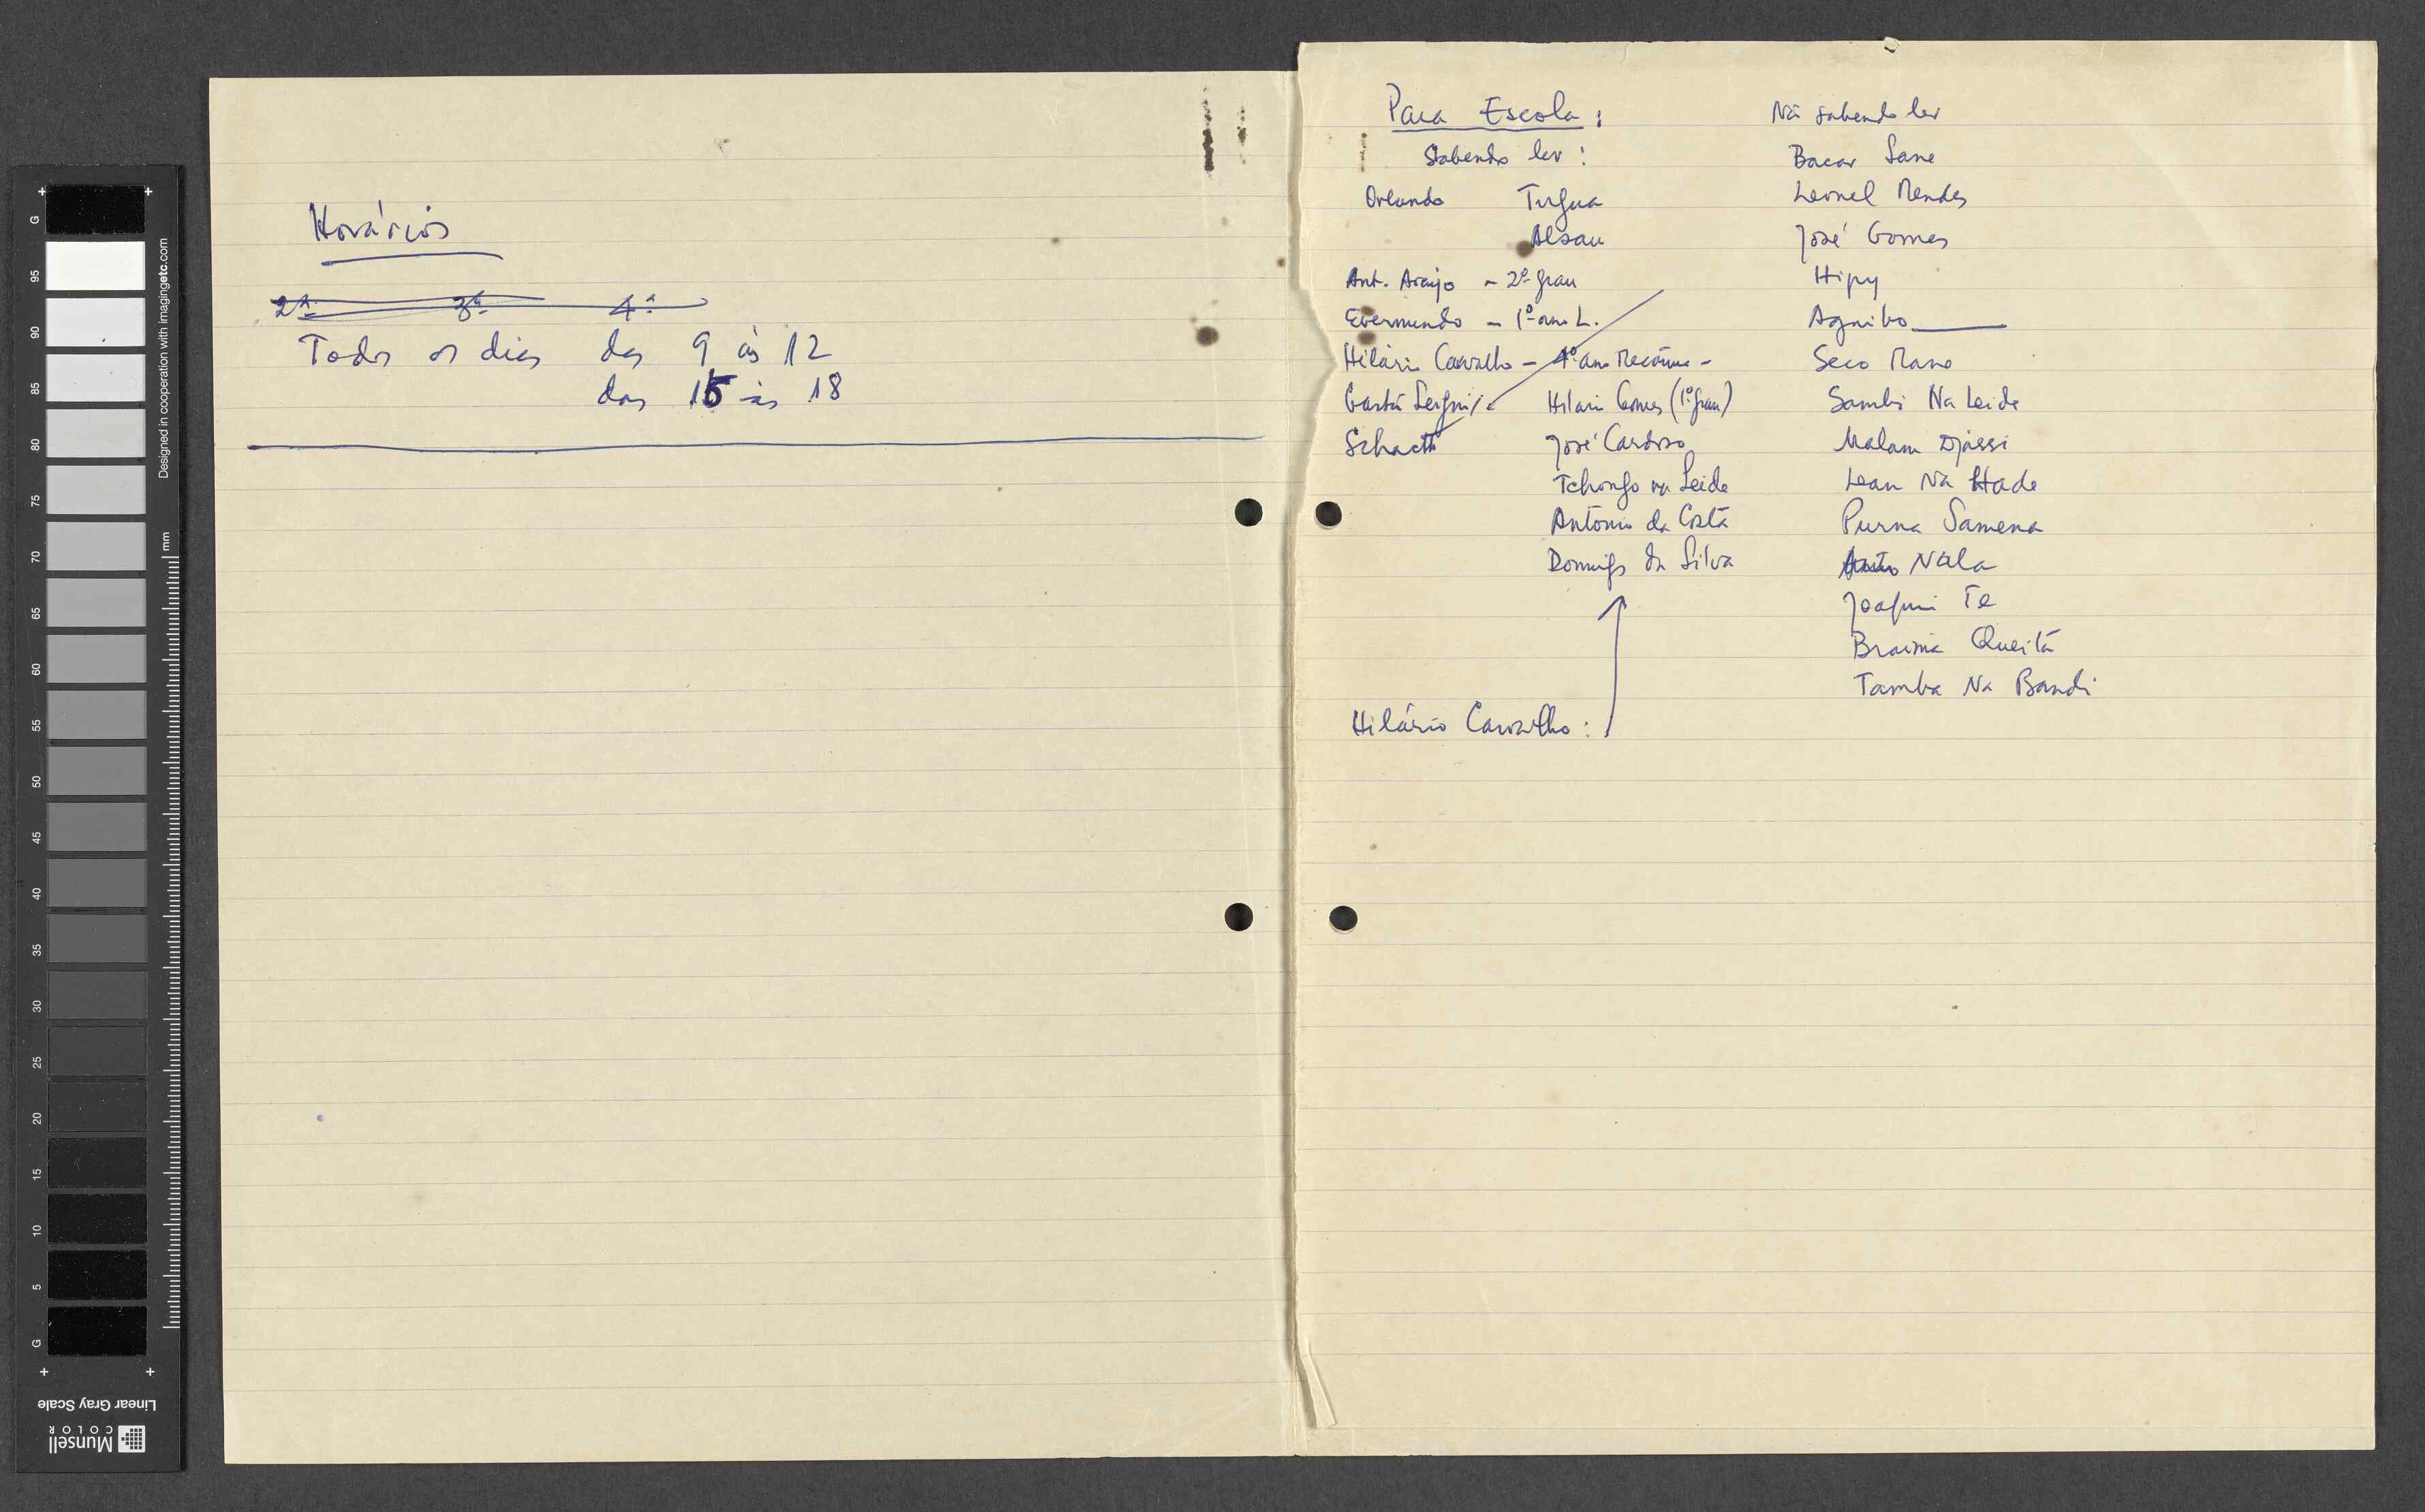 Horários
2ª 3ª 4ª
Todos os dias das 9 às 12
das 15 às 18
Para Escola :
Sabendo ler :
Orlando Turgua
Alsau
Ant. Araújo - 2º grau
Evermundo - 1º ano L.
Hilário Carvalho - 4º ano Mecânico -
Hilario Gomes (1º grau)
Schacth José Cardoso
Tchongo na Leide
António da Costa
Domingos da Silva
Hilário Carvalho :
Não sabendo ler
Bacar Sane
Leonel Mendes
José Gomes
Hipy
Agnibo
Seco Mané
Sambi Na Leide
Malam Djassi
Lean Na Hade
Purna Samena
Nala
Joaquim Té
Braima Queitá
Tamba Na Bandi
G
95
90
85
80
75
70
65
60
55
50
45
40
35
30
25
20
15
10
5
G
mm
Designed in cooperation with imagingetc.com
Linear Gray Scale
Munsell
COLOR